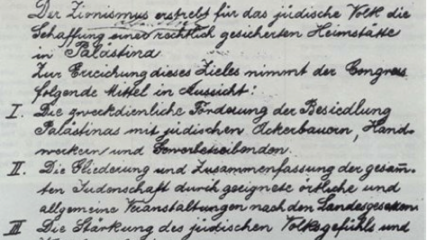 Der Zionismus erstrebt für das jüdische Volk die
Schaffung einer rechtlich gesicherten Heimstätte
in Palästina.
Zur Erreichung dieses Zieles nimmt der Congress
folgende Mittel in Aussicht:
I. Die zweckdienliche Förderung der Besiedlung
Palästinas mit jüdischen Ackerbauern, Hand-
werkern und Gewerbetreibenden.
II. Die Gliederung und Zusammenfassung der gesam̄-
ten Judenschaft durch geeignete örtliche und
allgemeine Veranstaltungen nach den Landesgesetzen.
III Die Stärkung des jüdischen Volksgefühls und